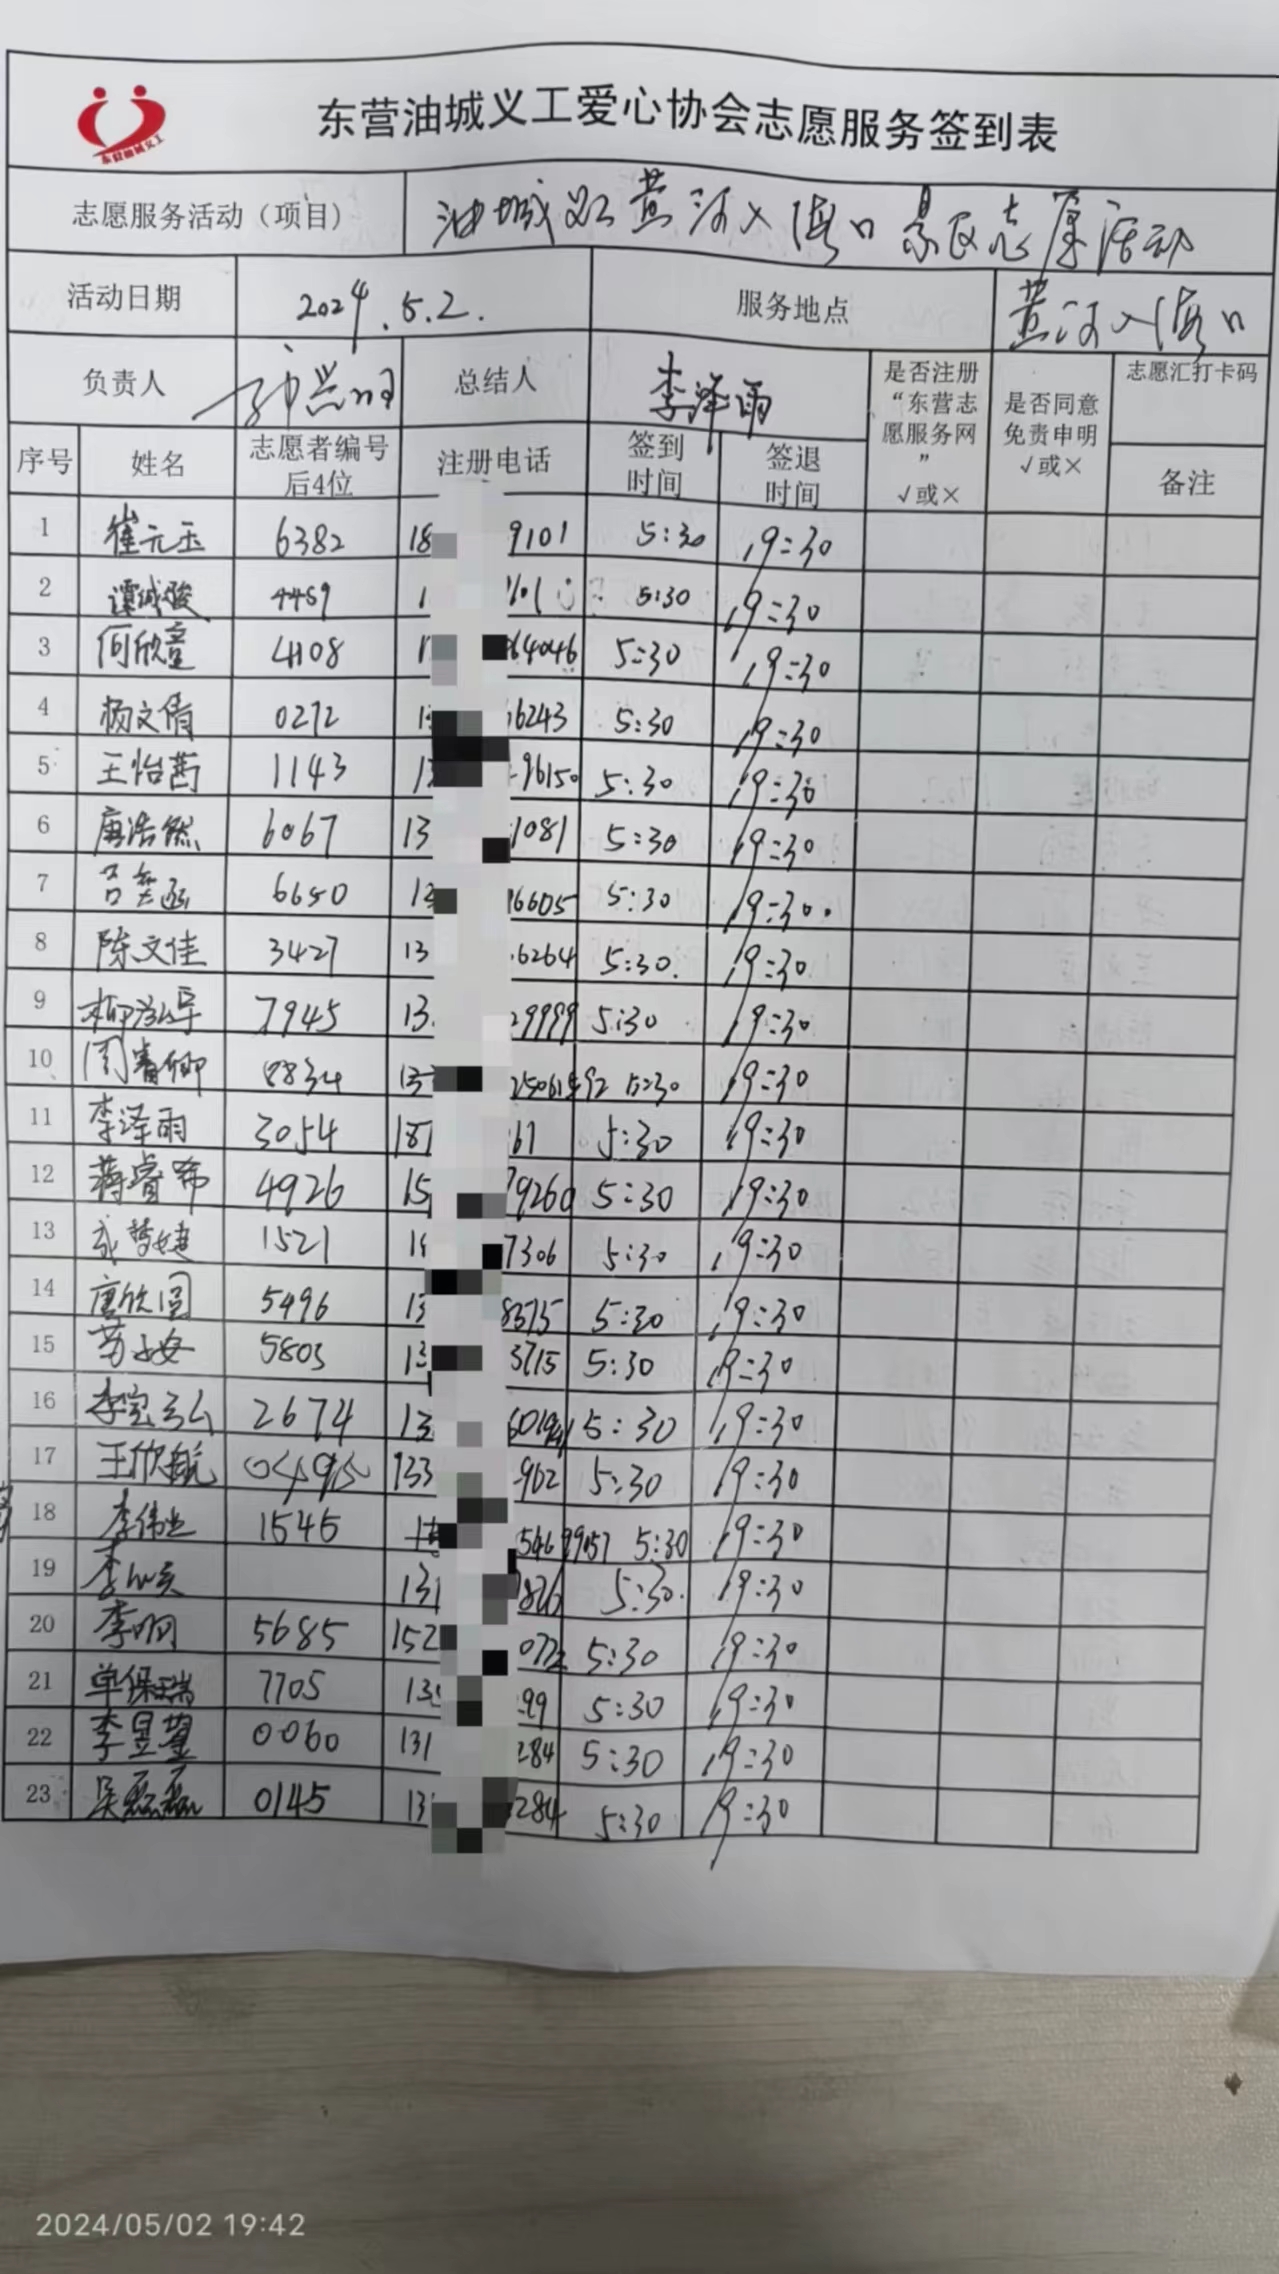 东营油城义工
东营油城义工爱心协会志愿服务签到表
志愿服务活动（项目） 油城义工黄河入海口景区志愿活动
活动日期 2024.5.2. 服务地点 黄河入海口
负责人 总结人 李泽雨 是否注册“东营志愿服务网” √或× 是否同意免责申明 √或× 志愿汇打卡码
序号 姓名 志愿者编号后4位 注册电话 签到时间 签退时间 备注
1 崔元玉 6382 18 9101 5:30 19:30
2 谭诚骏 4469 1 5:30 19:30
3 何欣童 4108 1 64046 5:30 19:30
4 杨文倩 0272 1 66243 5:30 19:30
5 王怡茜 1143 1 96150 5:30 19:30
6 唐浩然 6067 13 1081 5:30 19:30
7 吕奕函 6650 1 16605 5:30 19:30.
8 陈文佳 3427 13 6264 5:30. 19:30
9 柳泓宇 7945 13 29999 5:30 19:30
10 周睿卿 8834 13 5:30 19:30
11 李泽雨 3054 181 61 5:30 19:30
12 蒋睿希 4926 15 79260 5:30 19:30
13 1521 1 7306 5:30 19:30
14 唐欣圆 5496 13 8375 5:30 19:30
15 5803 13 3715 5:30 19:30
16 2674 13 5:30 19:30
17 王欣航 0495 133 962 5:30 19:30
18 李伟业 1545 5:30 19:30
19 131 5:30. 19:30
20 李明 5685 152 5:30 19:30
21 单保瑞 7705 13 99 5:30 19:30
22 李昱蓥 0060 131 284 5:30 19:30
23 吴磊磊 0145 13 284 5:30 19:30
2024/05/02 19:42